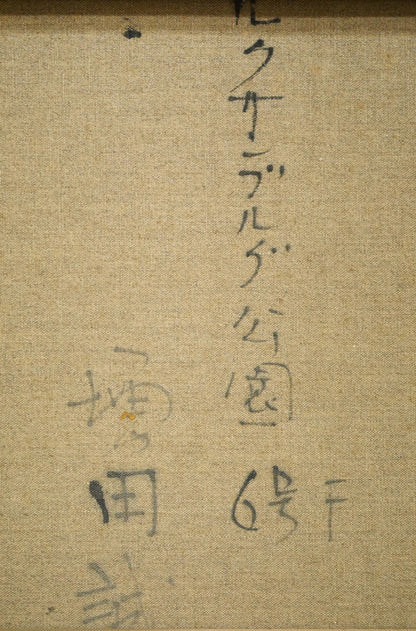 ルクサンブルグ公園
6号F
田